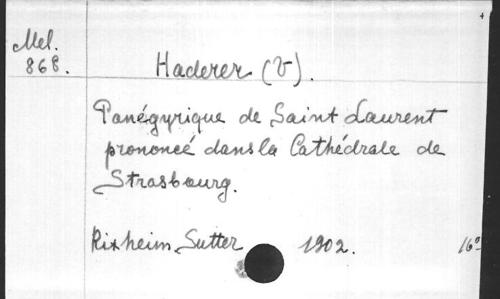 Mel.
868.
Haderer (V).
Panégyrique de Saint Laurent
prononcé dans la Cathédrale de
Strasbourg.
Rixheim, Sutter 1902. 16°